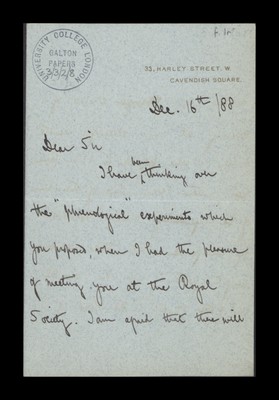 UNIVERSITY COLLEGE LONDON
GALTON
PAPERS
3/3/2/8
f. 1r
33, HARLEY STREET. W.
CAVENDISH SQUARE.
Dec. 16th /88
Dear Sir
I have been thinking over
the "phrenological" experiments which
you proposed, when I had the pleasure
of meeting you at the Royal
Society. I am afraid that there will